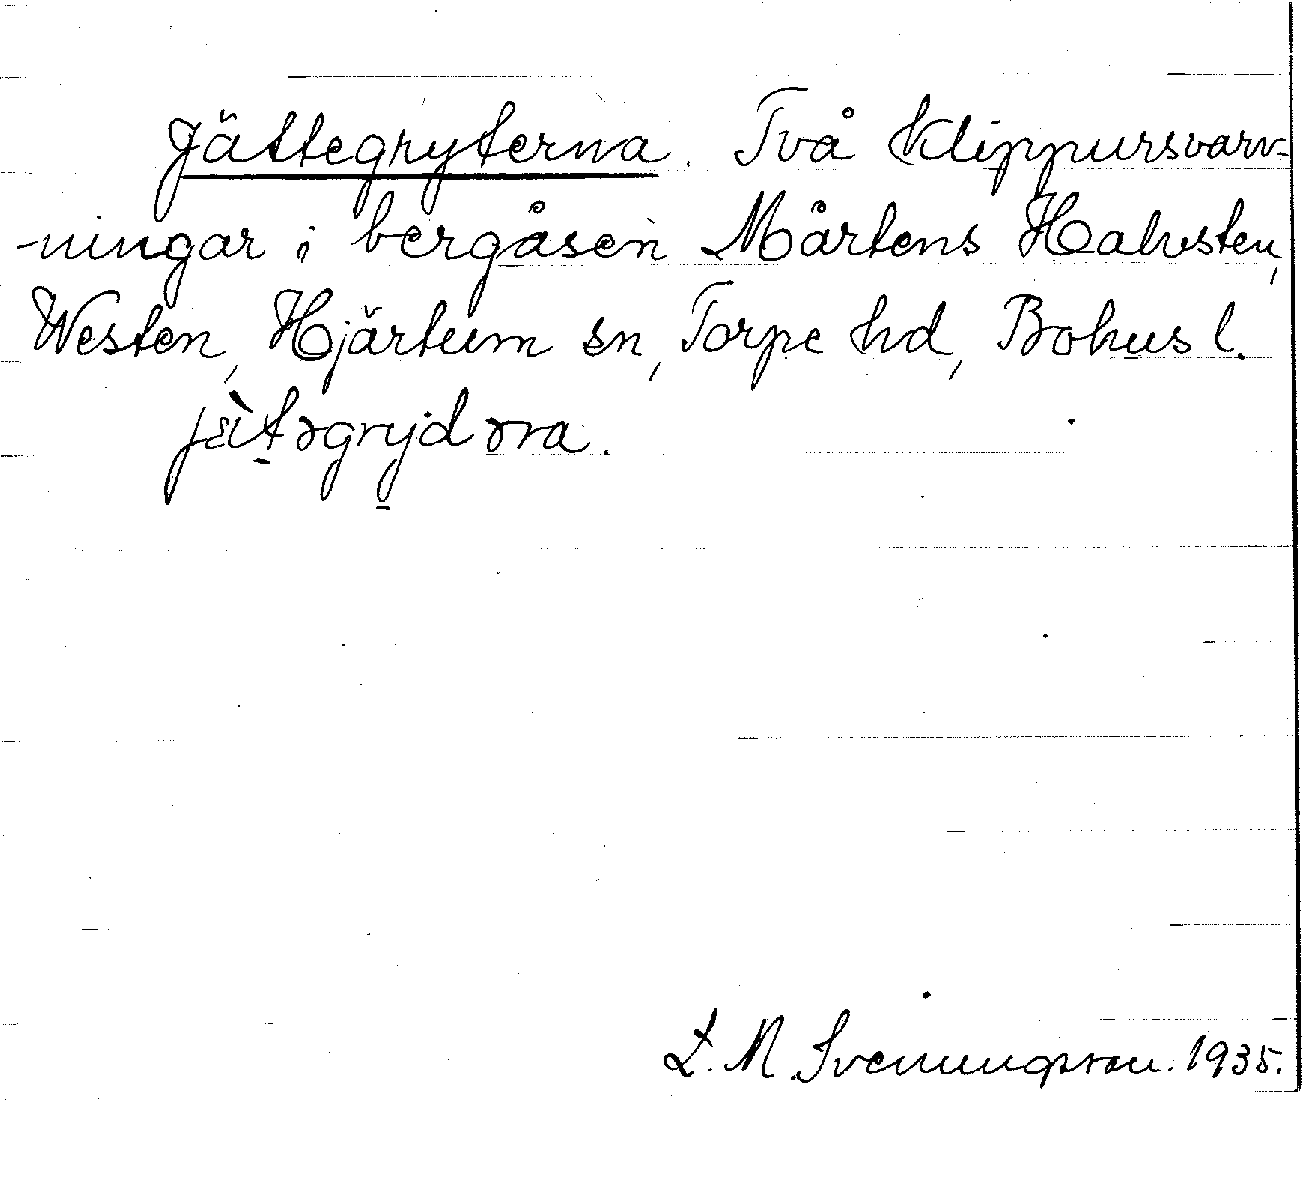 Jättegryterna. Två klippursvarv-
-ningar i bergåsen Mårtens Halvsten,
Westen, Hjärtum sn, Torpe hd, Bohus l.
jät̠əgryd ərna.
L. M. Svenungsson. 1935.